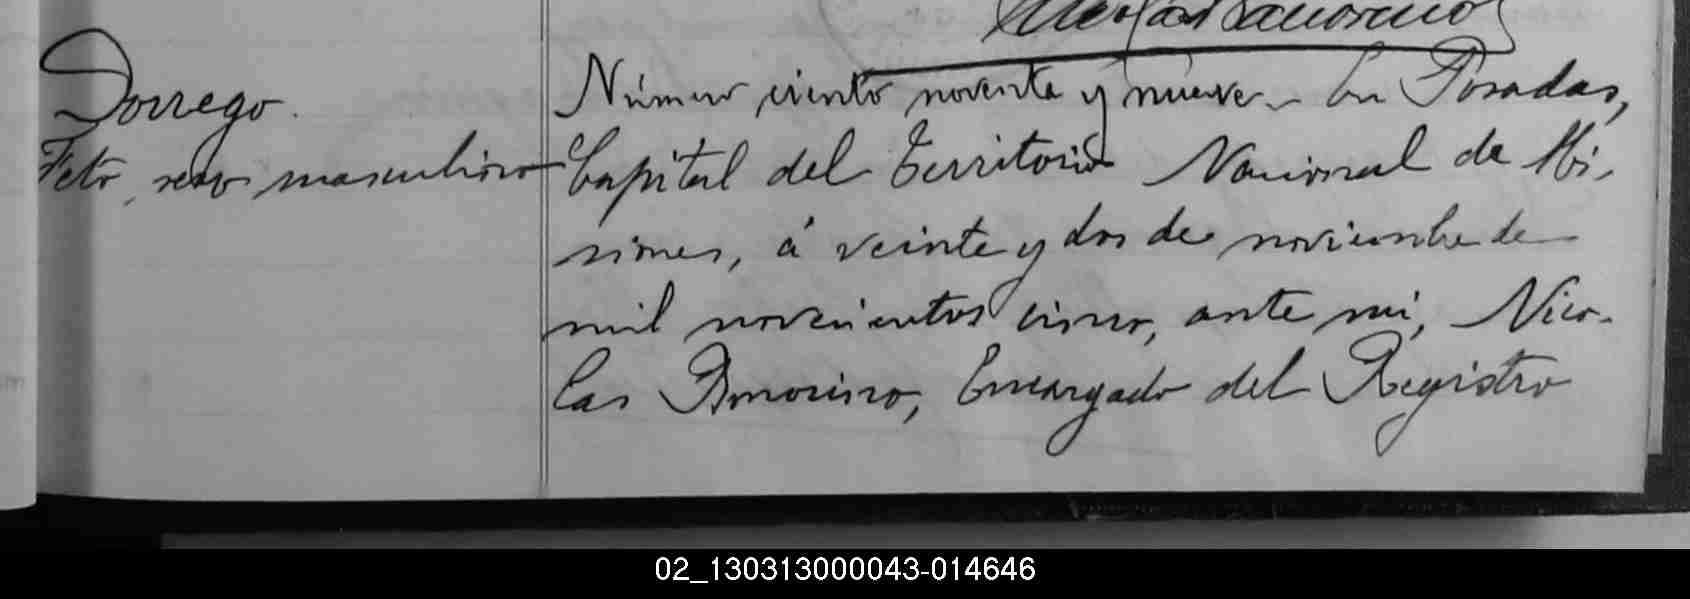 Dorrego.
Feto, sexo masculino
Número ciento noventa y nueve - En Posadas,
Capital del Territorio Nacional de Mi-
siones, á veinte y dos de noviembre de
mil novecientos cinco, ante mi, Nico-
las Amorino, Encargado del Registro
02_130313000043-014646